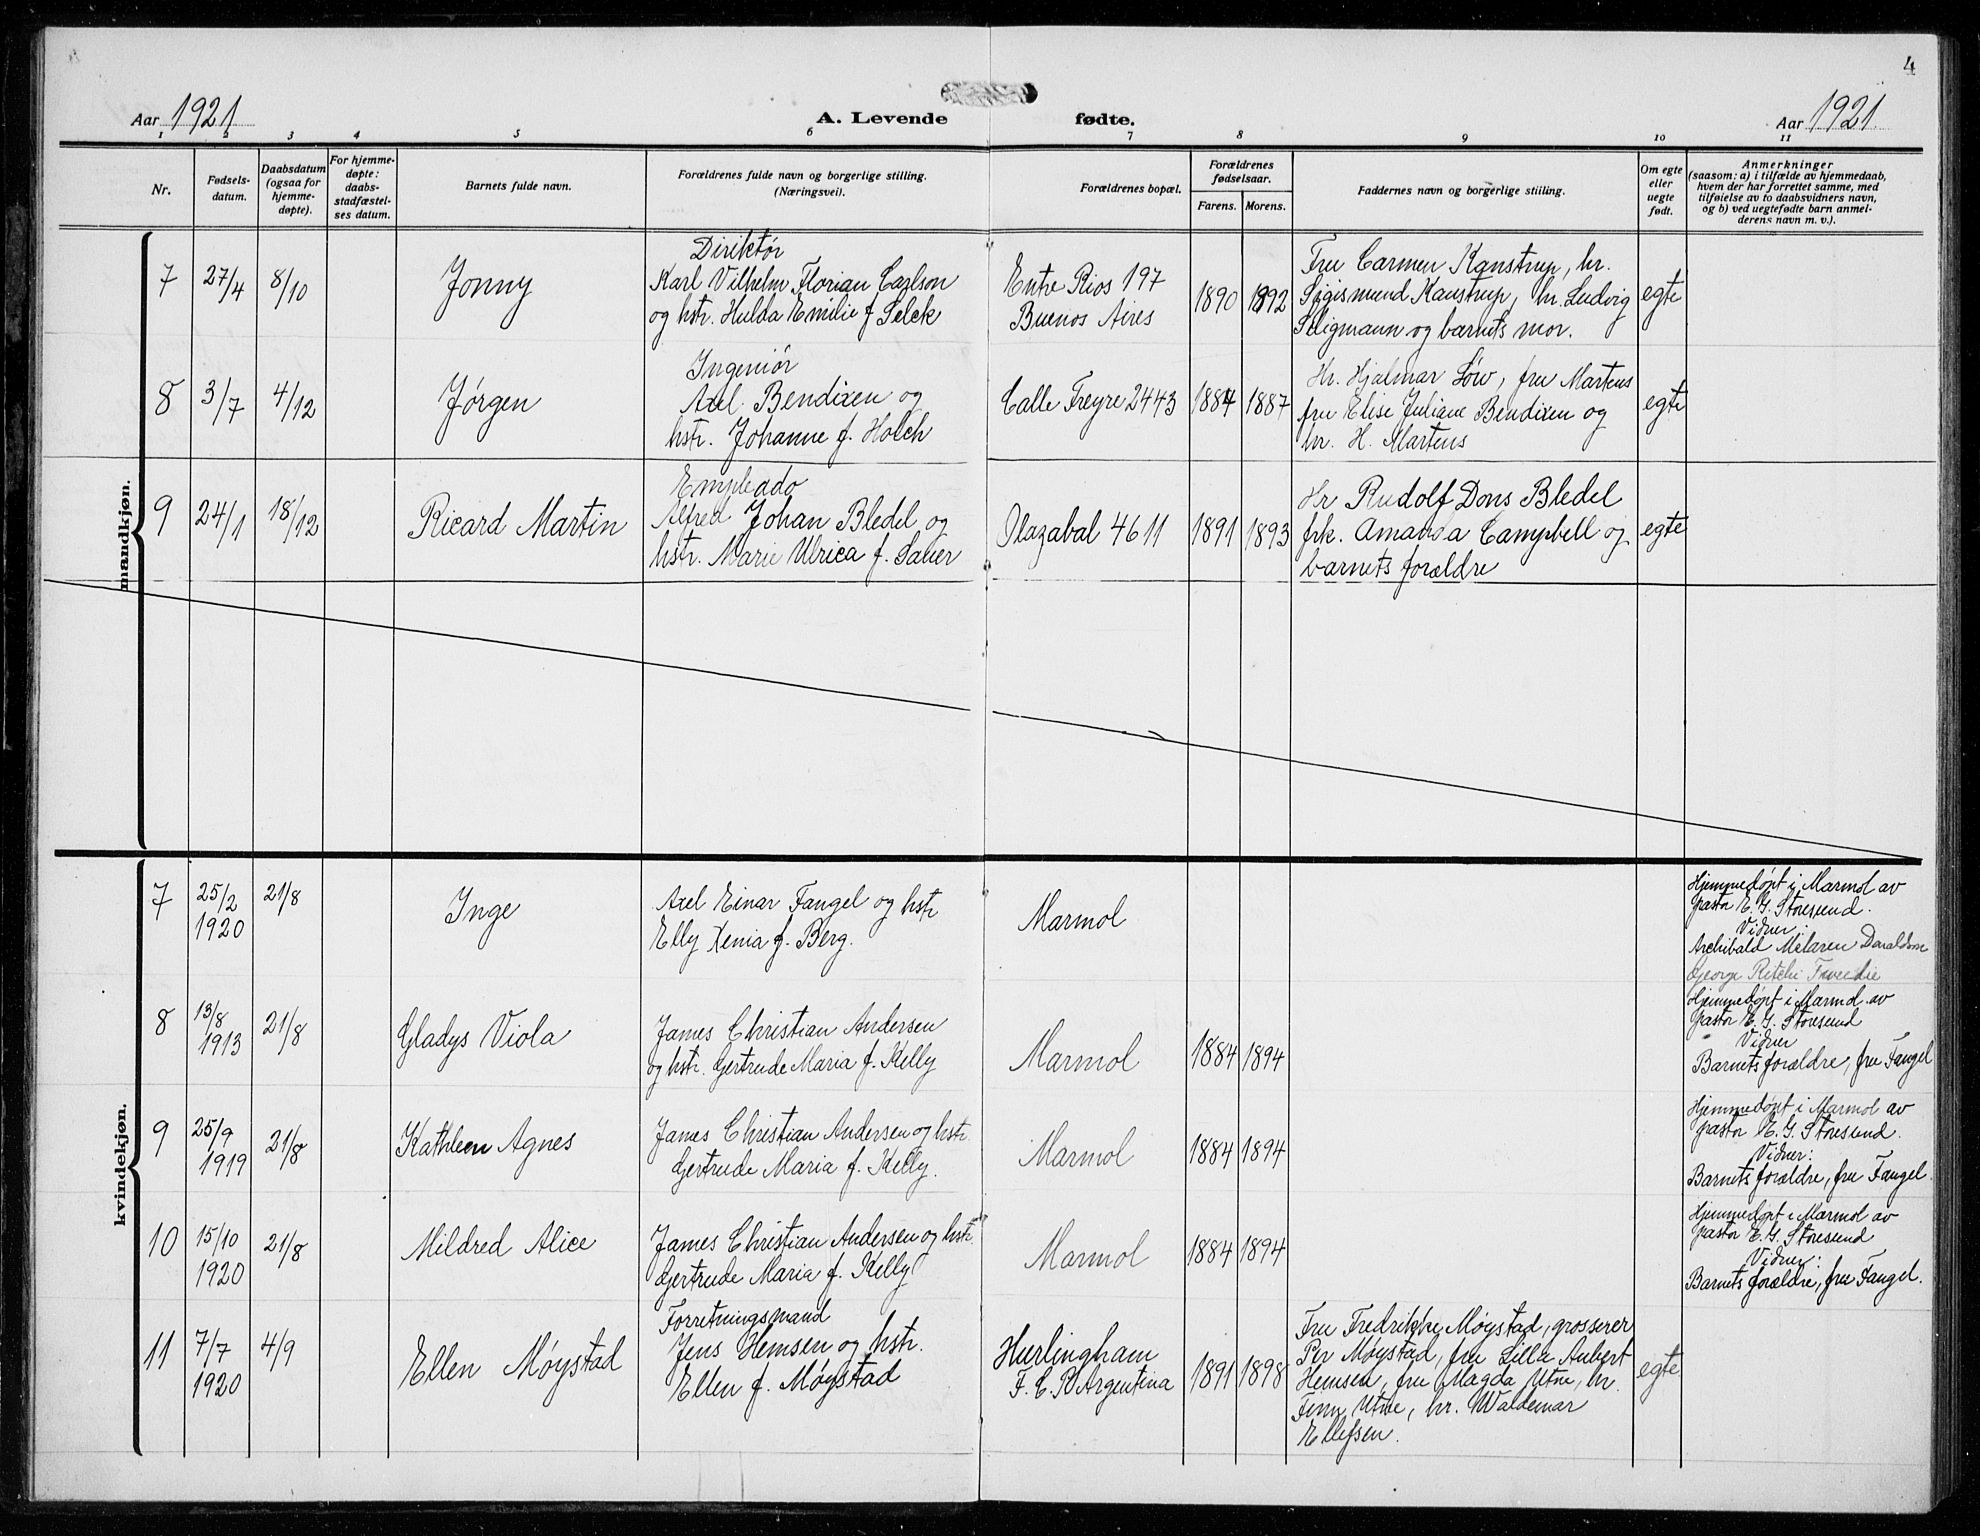 4
Aar 1921
A. Levende fødte.
Aar 1921
1 2 3 4 5 6 7 8 9 10 11
Nr.
Fødsels-
datum.
Daabsdatum
(ogsaa for
hjemme-
døpte).
For hjemme-
døpte:
daabs-
stadfæstel-
ses datum.
Barnets fulde navn.
Forældrenes fulde navn og borgerlige stilling.
(Næringsvei).
Forældrenes bopæl.
Forældrenes
fødselsaar.
Farens. Morens.
Faddernes navn og borgerlige stilling.
Om egte
eller
uegte
født.
Anmerkninger
(saasom: a) i tilfælde av hjemmedaab,
hvem der har forrettet samme, med
tilføielse av to daabsvidners navn,
og b) ved uegtefødte barn anmel-
derens navn m. v.).
mandkjøn.
7
27/4
8/10
Jonny
Diriktør
Karl Vilhelm Florian Carlson
og hstr. Hulda Emilie f Selck
Entre Rios 197
Buenos Aires
1890
1892
Fru Carmen Kanstrup, hr.
Sigismund Kanstrup, hr. Ludvig
Seligmann og barnets mor.
egte
8
3/7
4/12
Jørgen
Ingeniør
Axel Bendixen og
hstr. Johanne f. Holch
Calle Freyre 2443
1884
1887
Hr. Hjalmar Löw, fru Martens
fru Elise Juliane Bendixen og
hr. H. Martens
egte
9
24/1
18/12
Ricard Martin
Empleado
Alfred Johan Bledel og
hstr. Marie Ulrica f. Sauer
Olazabal 4611
1891
1893
Hr Rudolf Dons Bledel
frk. Amanda Campbell og
barnets forældre
egte
kvindekjøn.
7
25/2
1920
21/8
Inge
Axel Einar Fangel og hstr
Elly Xenia f. Berg.
Marmol
Hjemmedøpt i Marmol av
pastor E. G. Storesund.
Vidner:
Archibald Mclaren Donaldson
George Ritchi Tweedie
8
13/8
1913
21/8
Gladys Viola
James Christian Andersen
og hstr. Gertrude Maria f. Kelly
Marmol
1884
1894
Hjemmedøpt i Marmol av
pastor E. G. Storesund
Vidner
Barnets forældre, fru Fangel
9
25/9
1919
21/8
Kathleen Agnes
James Christian Andersen og hstr.
Gertrude Maria f. Kelly.
Marmol
1884
1894
Hjemmedøpt i Marmol av
pastor E. G. Storesund.
Vidner:
Barnets forældre, fru Fangel.
10
15/10
1920
21/8
Mildred Alice
James Christian Andersen og hstr.
Gertrude Maria f. Kelly
Marmol
1884
1894
Hjemmedøpt i Marmol av
pastor E. G. Storesund
Vidner:
Barnets forældre, fru Fangel.
11
7/7
1920
4/9
Ellen Møystad
Forretningsmand
Jens Hemsen og hstr.
Ellen f. Møystad
Hurlingham
F. C. P. Argentina
1891
1898
Fru Fredrikke Møystad, grosserer
Per Møystad, fru Lilla Aubert
Hemsen, fru Magda Utne, hr.
Finn Utne, hr. Waldemar
Ellefsen.
egte